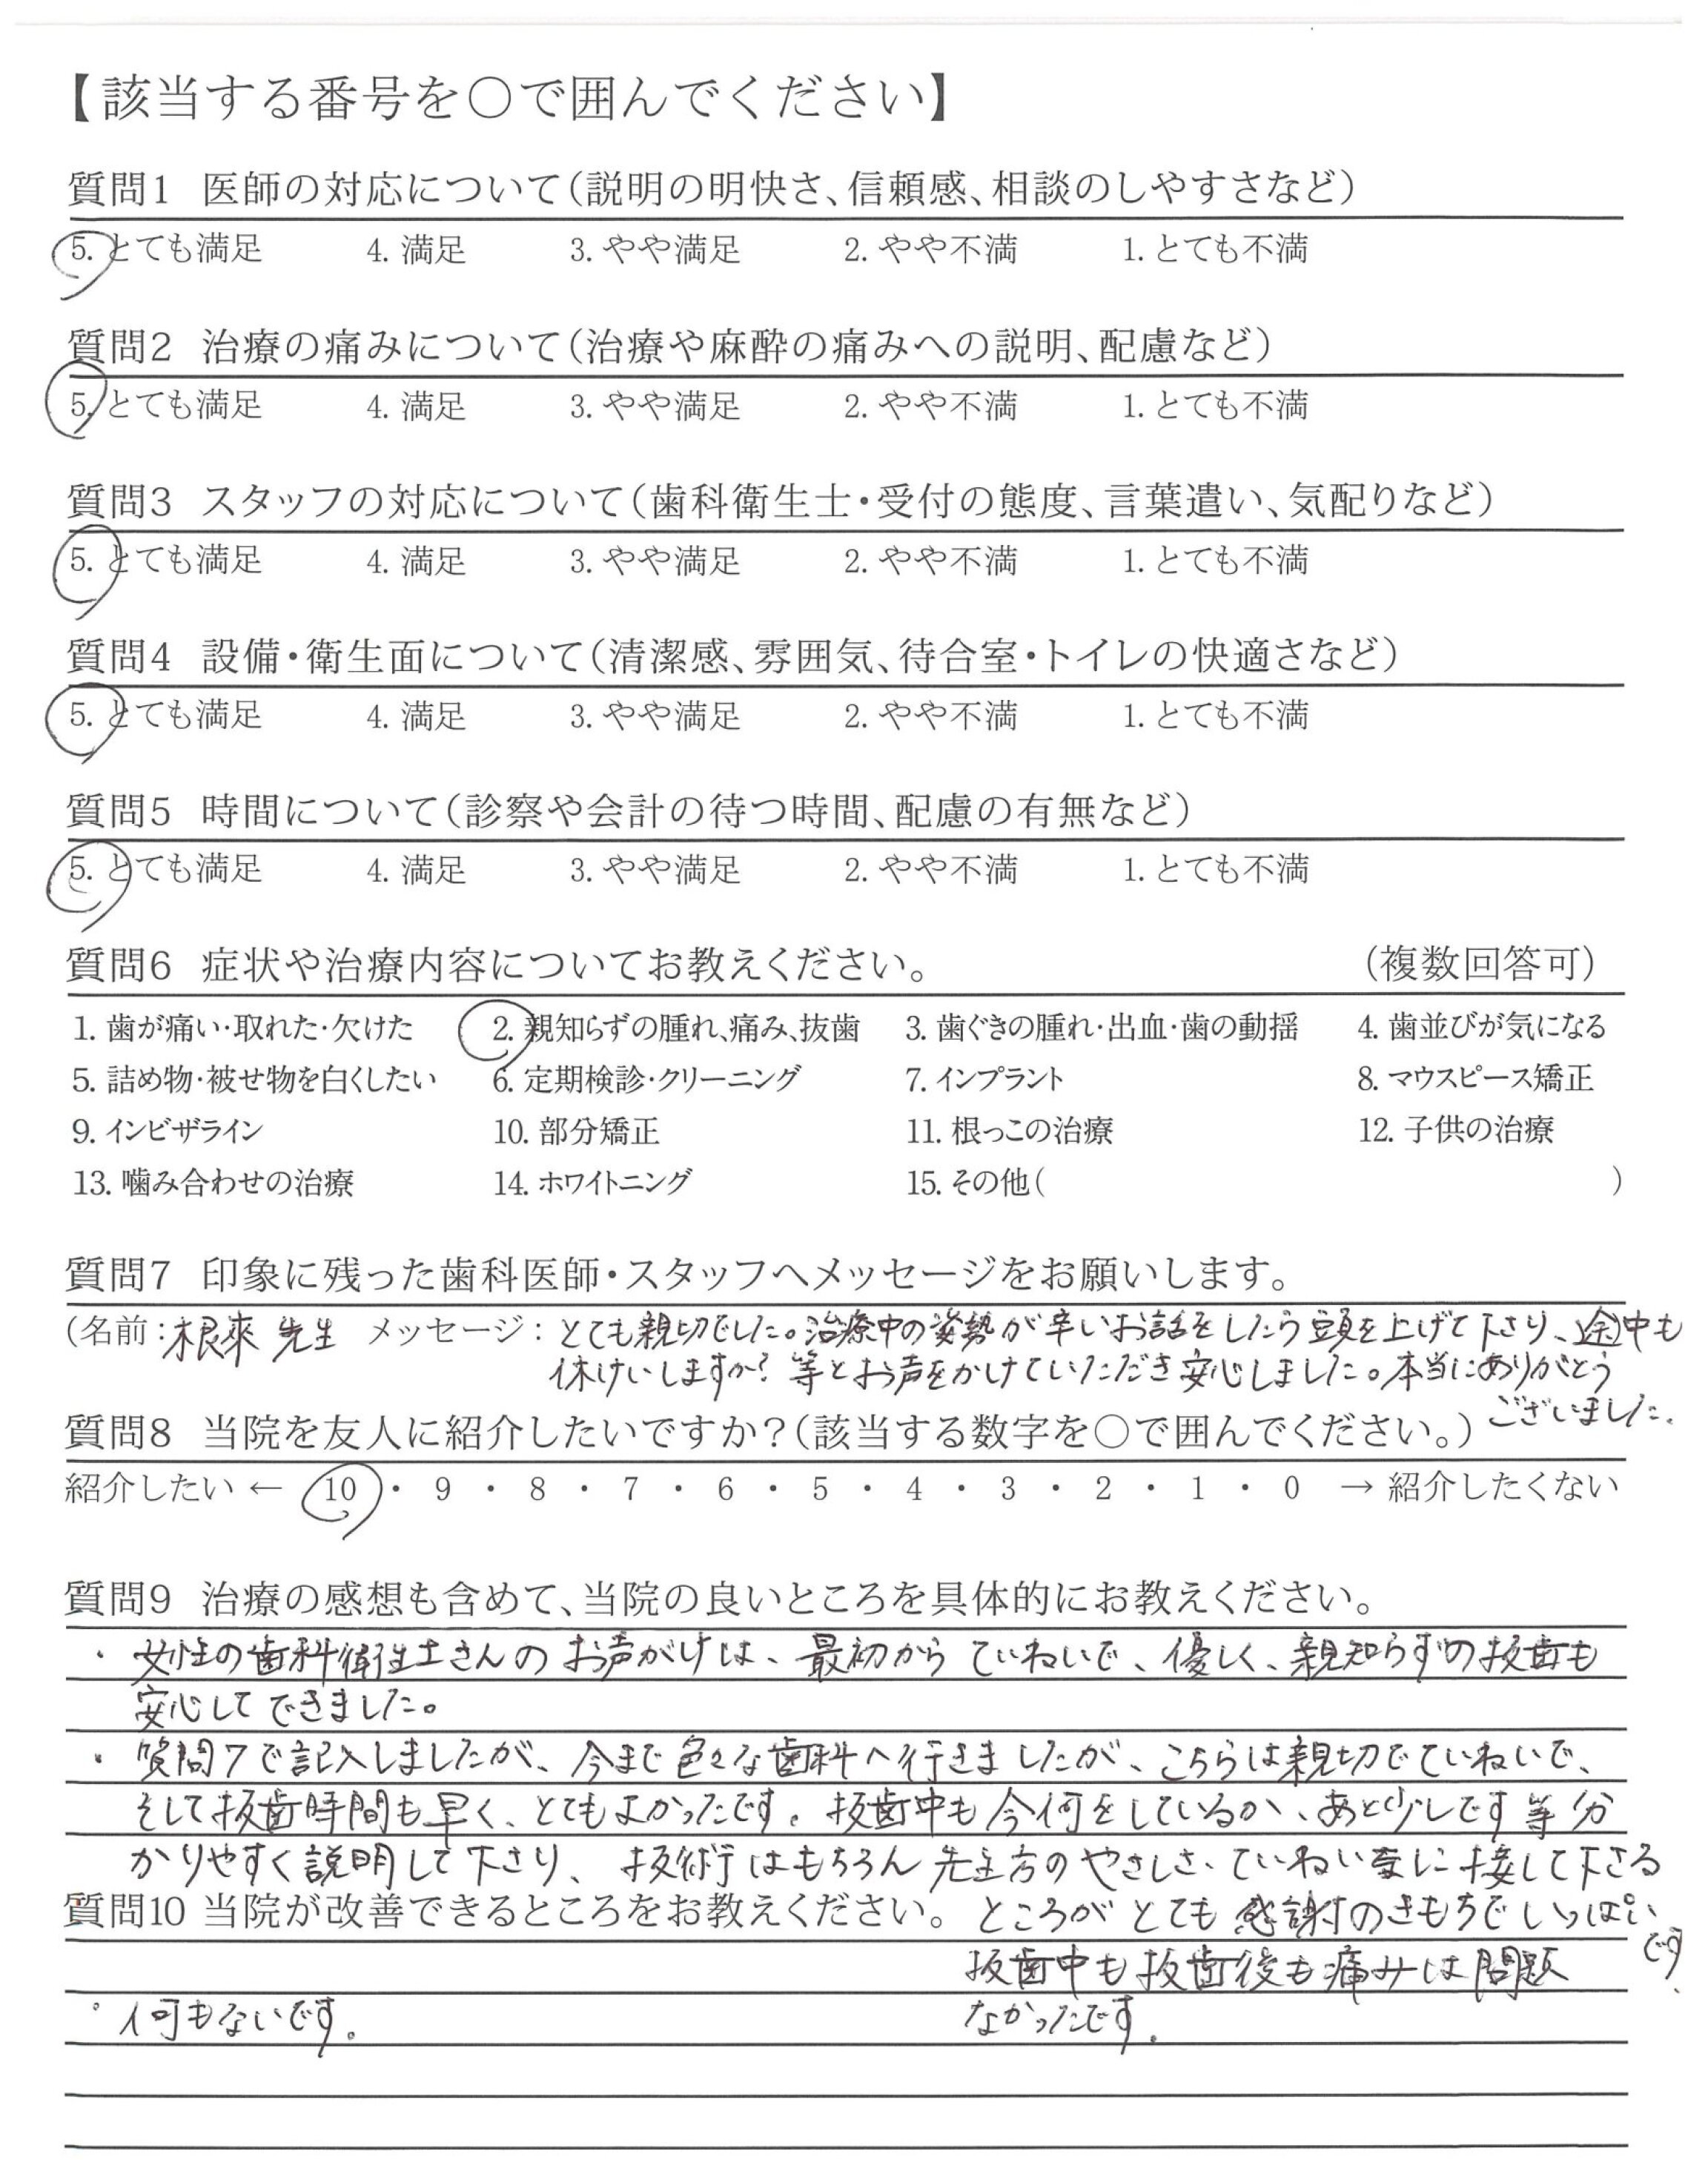 【該当する番号を○で囲んでください】
質問1 医師の対応について(説明の明快さ、信頼感、相談のしやすさなど)
5. とても満足 4. 満足 3. やや満足 2. やや不満 1. とても不満
質問2 治療の痛みについて(治療や麻酔の痛みへの説明、配慮など)
5. とても満足 4. 満足 3. やや満足 2. やや不満 1. とても不満
質問3 スタッフの対応について(歯科衛生士・受付の態度、言葉遣い、気配りなど)
5. とても満足 4. 満足 3. やや満足 2. やや不満 1. とても不満
質問4 設備・衛生面について(清潔感、雰囲気、待合室・トイレの快適さなど)
5. とても満足 4. 満足 3. やや満足 2. やや不満 1. とても不満
質問5 時間について(診察や会計の待つ時間、配慮の有無など)
5. とても満足 4. 満足 3. やや満足 2. やや不満 1. とても不満
質問6 症状や治療内容についてお教えください。 (複数回答可)
1. 歯が痛い・取れた・欠けた 2. 親知らずの腫れ、痛み、抜歯 3. 歯ぐきの腫れ・出血・歯の動揺 4. 歯並びが気になる
5. 詰め物・被せ物を白くしたい 6. 定期検診・クリーニング 7. インプラント 8. マウスピース矯正
9. インビザライン 10. 部分矯正 11. 根っこの治療 12. 子供の治療
13. 噛み合わせの治療 14. ホワイトニング 15. その他( )
質問7 印象に残った歯科医師・スタッフへメッセージをお願いします。
(名前:根來 先生 メッセージ: とても親切でした。治療中の姿勢が辛いお話をしたら頭を上げて下さり、途中も
休けいしますか?等とお声をかけていただき安心しました。本当にありがとう
ございました。
質問8 当院を友人に紹介したいですか?(該当する数字を○で囲んでください。)
紹介したい ← 10 ・ 9 ・ 8 ・ 7 ・ 6 ・ 5 ・ 4 ・ 3 ・ 2 ・ 1 ・ 0 → 紹介したくない
質問9 治療の感想も含めて、当院の良いところを具体的にお教えください。
・ 女性の歯科衛生士さんのお声がけは、最初からていねいで、優しく、親知らずの抜歯も
安心してできました。
・ 質問7で記入しましたが、今まで色々な歯科へ行きましたが、こちらは親切でていねいで、
そして抜歯時間も早く、とてもよかったです。抜歯中も今何をしているか、あと少しです等分
かりやすく説明して下さり、技術はもちろん先生方のやさしさ、ていねいに接して下さる
ところがとても感謝のきもちでいっぱい
です。
抜歯中も抜歯後も痛みは問題
なかったです。
質問10 当院が改善できるところをお教えください。
・ 何もないです。